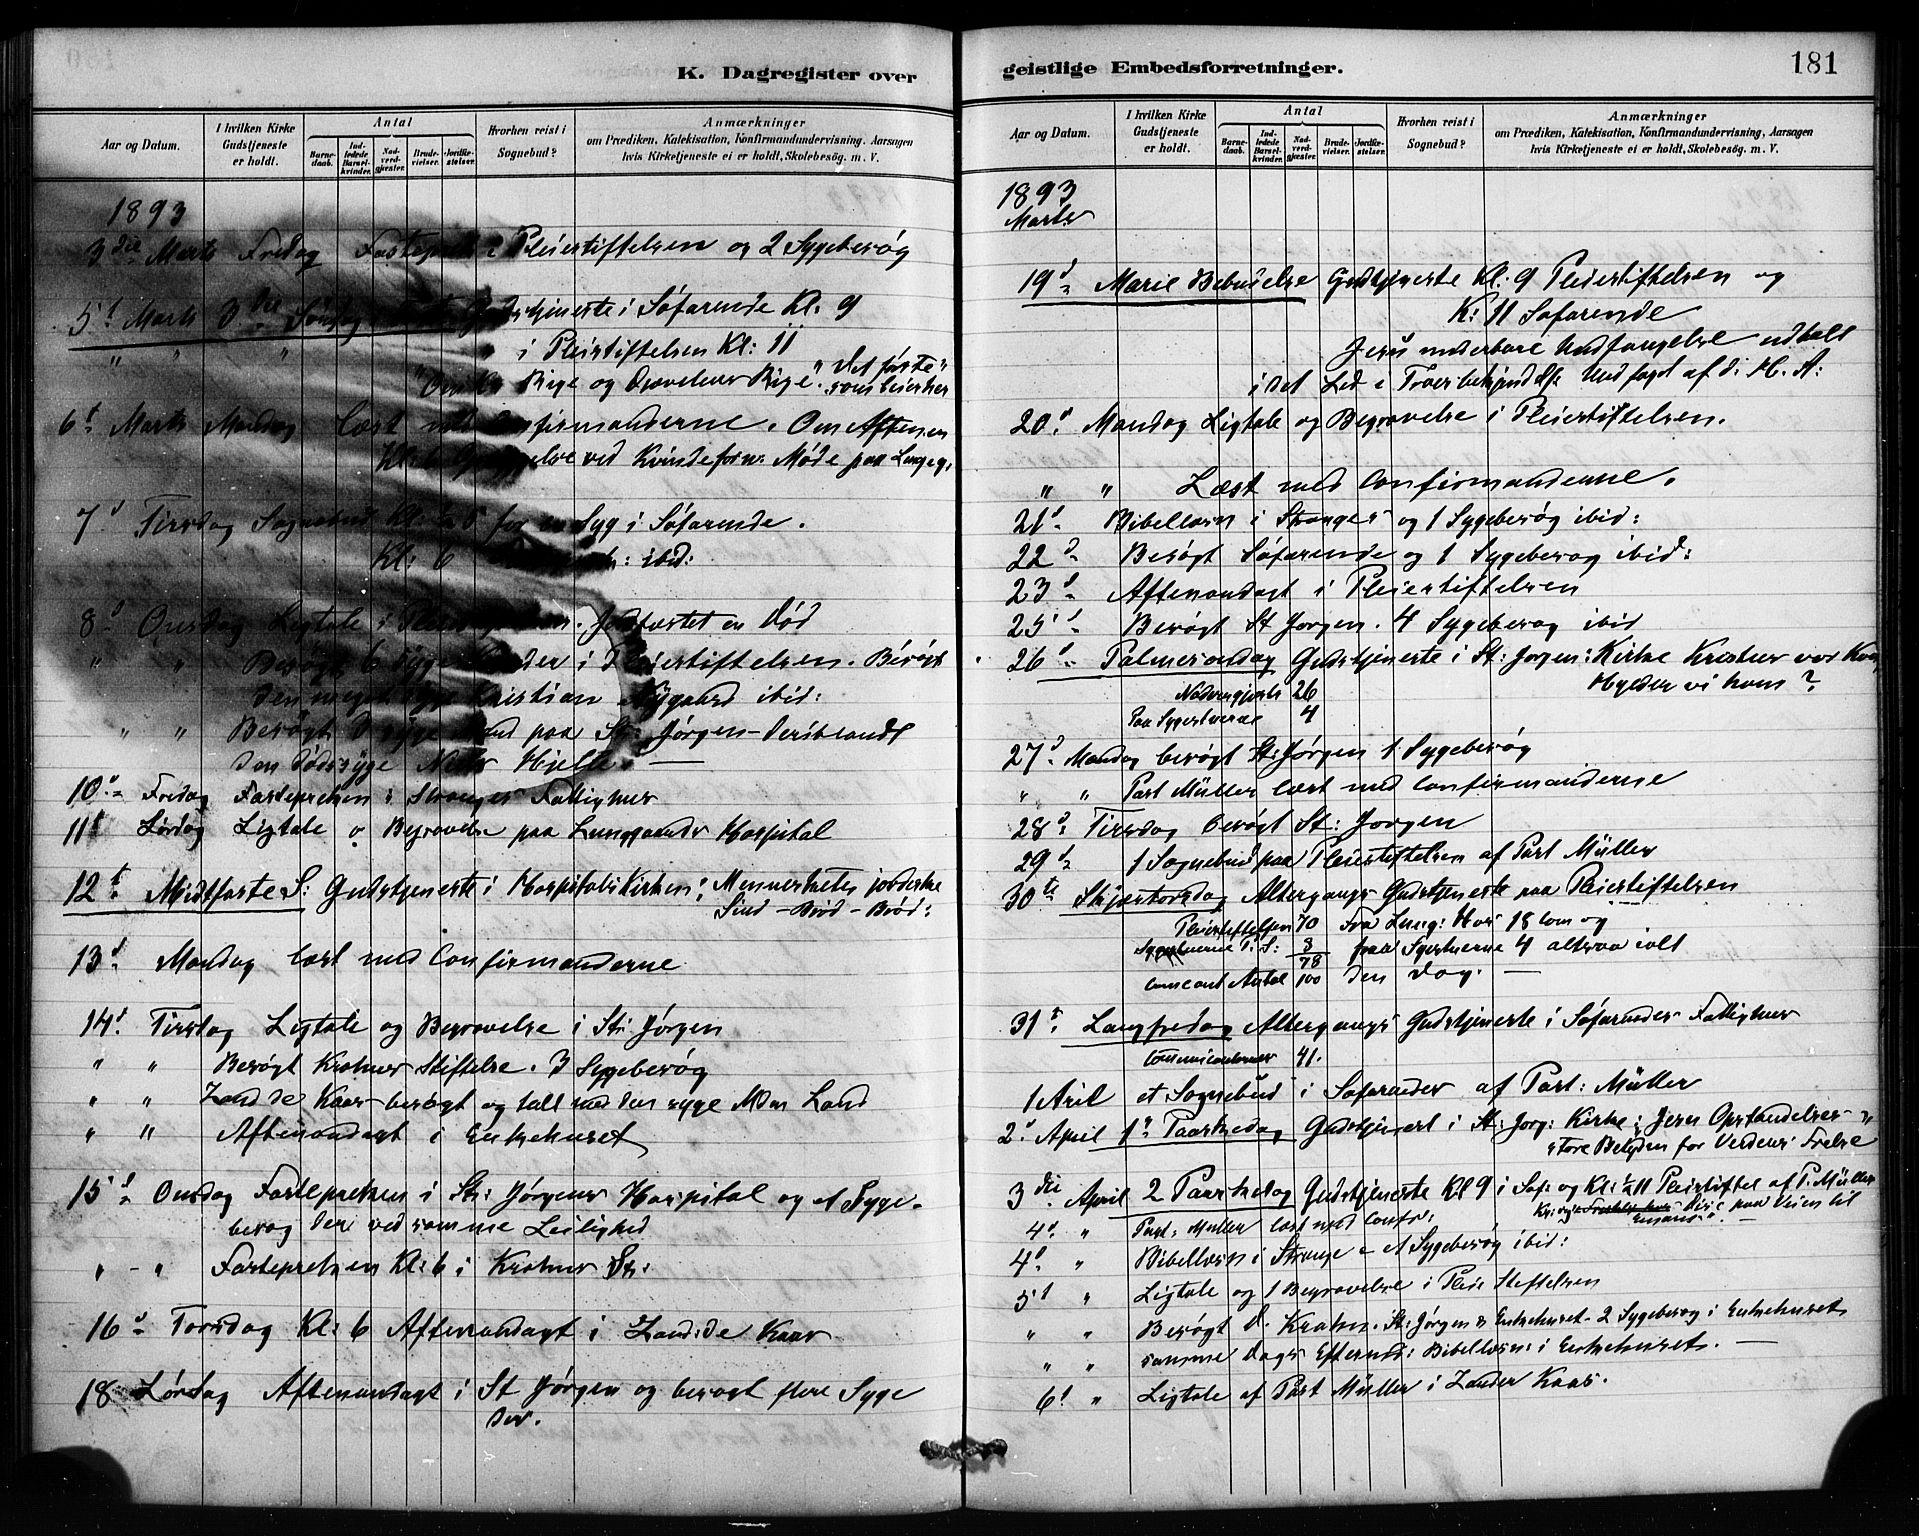 K. Dagregister over
Aar og Datum.
I hvilken Kirke Gudstjeneste er holdt.
Antal
Barnedaab.
Indledede Barselkvinder.
Nadverdgjæster.
Brudevielser.
Jordfæstelser.
Hvorhen reist i Sognebud?
Anmærkninger
om Prædiken, Katekisation, Konfirmandundervisning, Aarsagen
hvis Kirketjeneste ei er holdt, Skolebesøg. m. V.
1893
3die Marts Fredag i Pleiestiftelsen og 2 Sygebesøg
5t Marts 3die Søndag i Søfarende Kl: 9
" " " " i Pleiestiftelsen Kl: 11
Rige og Djævelens Rige. "Det første"
6t Marts Mandag Læst med Confirmanderne. Om Aftenen
ved Kvindeforn: Møde paa Lungeg:
7d Tirsdag Sognebud Kl: 5 for en Syg i Søfarende.
Kl: 6 ibid:
8d Onsdag Ligtale i Jordfæstet en Død
" " Besøgt 6 Syge i Pleiestiftelsen. Besøgt
den meget syge Kristian Nygaard ibid:
" " Besøgt 3 syge Mænd paa St: Jørgen - deriblandt
den dødssyge Hjelle. —
10d Fredag Fastepreken i Stranges Fattighus
11t Lørdag Ligtale o Begravelse paa Lunggaards Hospital
12t Midtfaste S: Gudstjeneste i Hospitals Kirken: Menneskets jordiske
Sind - Brød - Brød:
13d Mandag læst med Confirmanderne
14d Tirsdag Ligtale og Begravelse i St: Jørgen
" " Besøgt Krohns Stiftelse. 3 Sygebesøg
" " Zander Kaas besøgt og talt med den syge Mdm Land
" " Aftenandagt i Enkehuset
15d Onsdag Fastepreken i St: Jørgens Hospital og et Syge-
besøg der ved samme Leilighed
" - " Fasteprekn Kl: 6 i Krohns St:
16d Torsdag Kl: 6 Aftenandagt i Zander Kaas
18 Lørdag Aftenandagt i St Jørgen og besøgt flere Syge
der.
geistlige Embedsforretninger.
181
Aar og Datum.
I hvilken Kirke Gudstjeneste er holdt.
Antal
Barnedaab.
Indledede Barselkvinder.
Nadverdgjæster.
Brudevielser.
Jordfæstelser.
Hvorhen reist i Sognebud?
Anmærkninger
om Prædiken, Katekisation, Konfirmandundervisning, Aarsagen
hvis Kirketjeneste ei er holdt, Skolebesøg. m. V.
1893
Marts
19d Marie Bebudelse Gudstjeneste Kl: 9 Pleiestiftelsen og
K: 11 Søfarende
Jesu underbare Undfangelse udtalt
i det Led i Troesbekjendelse Undfaget af d: H. A:
20d Mandag Ligtale og Begravelse i Pleiestiftelsen.
" " Læst med Confirmanderne.
21d Bibellæsn i Stranges og 1 Sygebesøg ibid:
22d Besøgt Søfarende og 1 Sygebesøg ibid:
23d Aftenandagt i Pleiestiftelsen
25d Besøgt St Jørgen. 4 Sygebesøg ibid
26d Palmesøndag Gudstjeneste i St: Jørgen: Kirke Kristus vor
Hylder vi ham?
26
Paa Sygestuerne 4
27d Mandag besøgt St: Jørgen 1 Sygebesøg
" " Past Müller læst med Confirmanderne
28d Tirsdag besøgt St: Jørgen
29d 1 Sognebud paa Pleiestiftelsen af Past Müller
30te Skjærtorsdag Altergangs Gudstjeneste paa Pleiestiftelsen
Pleiestiftelsen 70 Fra Lung: Hos: 18 com og
Sygestuerne P. S: 8 paa Sygestuerne 4 altsaa ialt
78
Antal 100 den Dag. —
31t Langfredag Altergangs Gudstjeneste i Søfarendes Fattighus
41.
1 Aril et Sognebud i Søfarendes af Past: Müller
2d April 1te Paaskedag Gudstjenest i St: Jørg: Kirke: Jesu Opstandelses
store Betyden for Verdens Frelse
3die April 2 Paaskedag Gudstjeneste Kl 9 i Søf: og Kl: ½11 Pleiestiftel af P. Müller
paa Veien til
4d " Past: Müller læst med Conf:
4d " Bibellæsn i Strange - et Sygebesøg ibid:
5t " Ligtale og 1 Begravelse i Pleie Stiftelsen
" " Besøgt d. Krohn. St: Jørgen & Enkehuset - 2 Sygebesøg i Enkehuset
" " samme Dags Eftermd: Bibellæsn: i Enkehuset. —
6t " Ligtale af Past Müller i Zander Kaas.